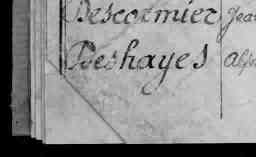 Descormier Jea
Deshayes Alp